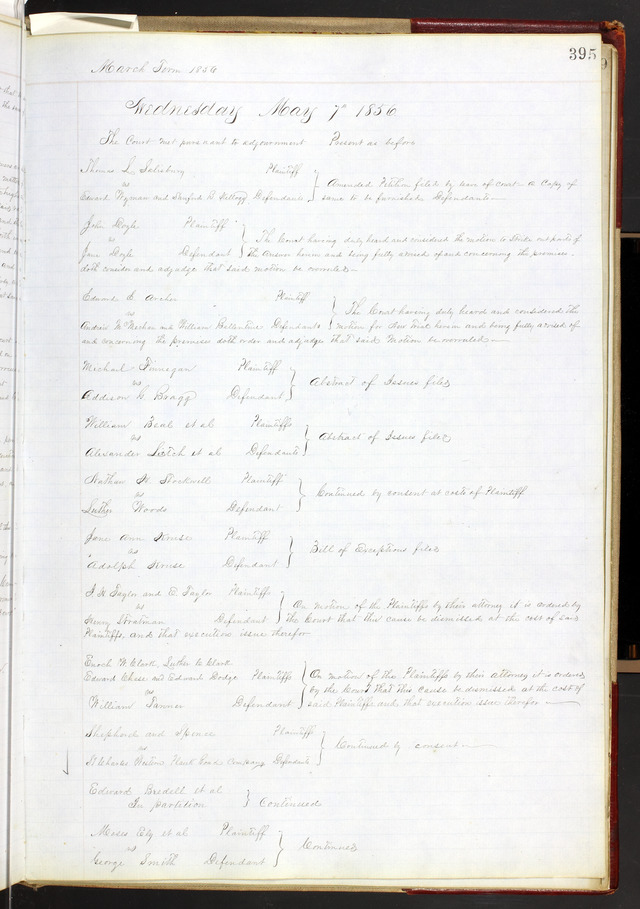 395
March Term 1856
Wednesday May 7th 1856
The Court met pursuant to adjournment Present as before
Thomas L. Salisbury Plaintiff
vs
Edward Wyman and Defendants
Amended Petition filed by leave of court - & Copy of
same to be furnished Defendants
John Doyle Plaintiff
vs
Jane Doyle Defendant
The Court having duly heard and considered the motion to Strike out parts of
the Answer herein and being fully advised of and concerning the premises
doth consider and adjudge that said motion be overruled
Edward Archer Plaintiff
vs
Andrew and William Ballentine Defendants
The Court having duly heard and considered the
motion for New Trial herein and being fully advised of
and concerning the premises doth order and adjudge that said motion be overruled
Michael Finnegan Plaintiff
vs
Addison G Bragg Defendant
Abstract of Issues filed
William Beal et al Plaintiffs
vs
Alexander Leitch et al Defendants
Abstract of Issues filed
Nathan Stockwell Plaintiff
vs
Luther Woods Defendant
Continued by consent at costs of Plaintiff
Jane Ann Krouse Plaintiff
vs
Adolph Krouse Defendant
Bill of Exceptions filed
Taylor and E. Taylor Plaintiffs
vs
Henry Stratman Defendant
On motion of the Plaintiffs by their attorney it is ordered by
the Court that this cause be dismissed at the cost of said
Plaintiffs, and that execution issue therefor
Enoch W Clark, Luther C Clark
Edward Chase and Edward Dodge Plaintiffs
vs
William Farmer Defendant
On motion of the Plaintiffs by their attorney it is ordered
by the Court that this cause be dismissed at the cost of
said Plaintiffs and that execution issue therefor
Shepherd and Spence Plaintiff
vs
St Charles Western Plank Road Company Defendants
Continued by consent
Edward Bredell et al
In partition
Continued
Moses Ely et al Plaintiff
vs
George Smith Defendant
Continued